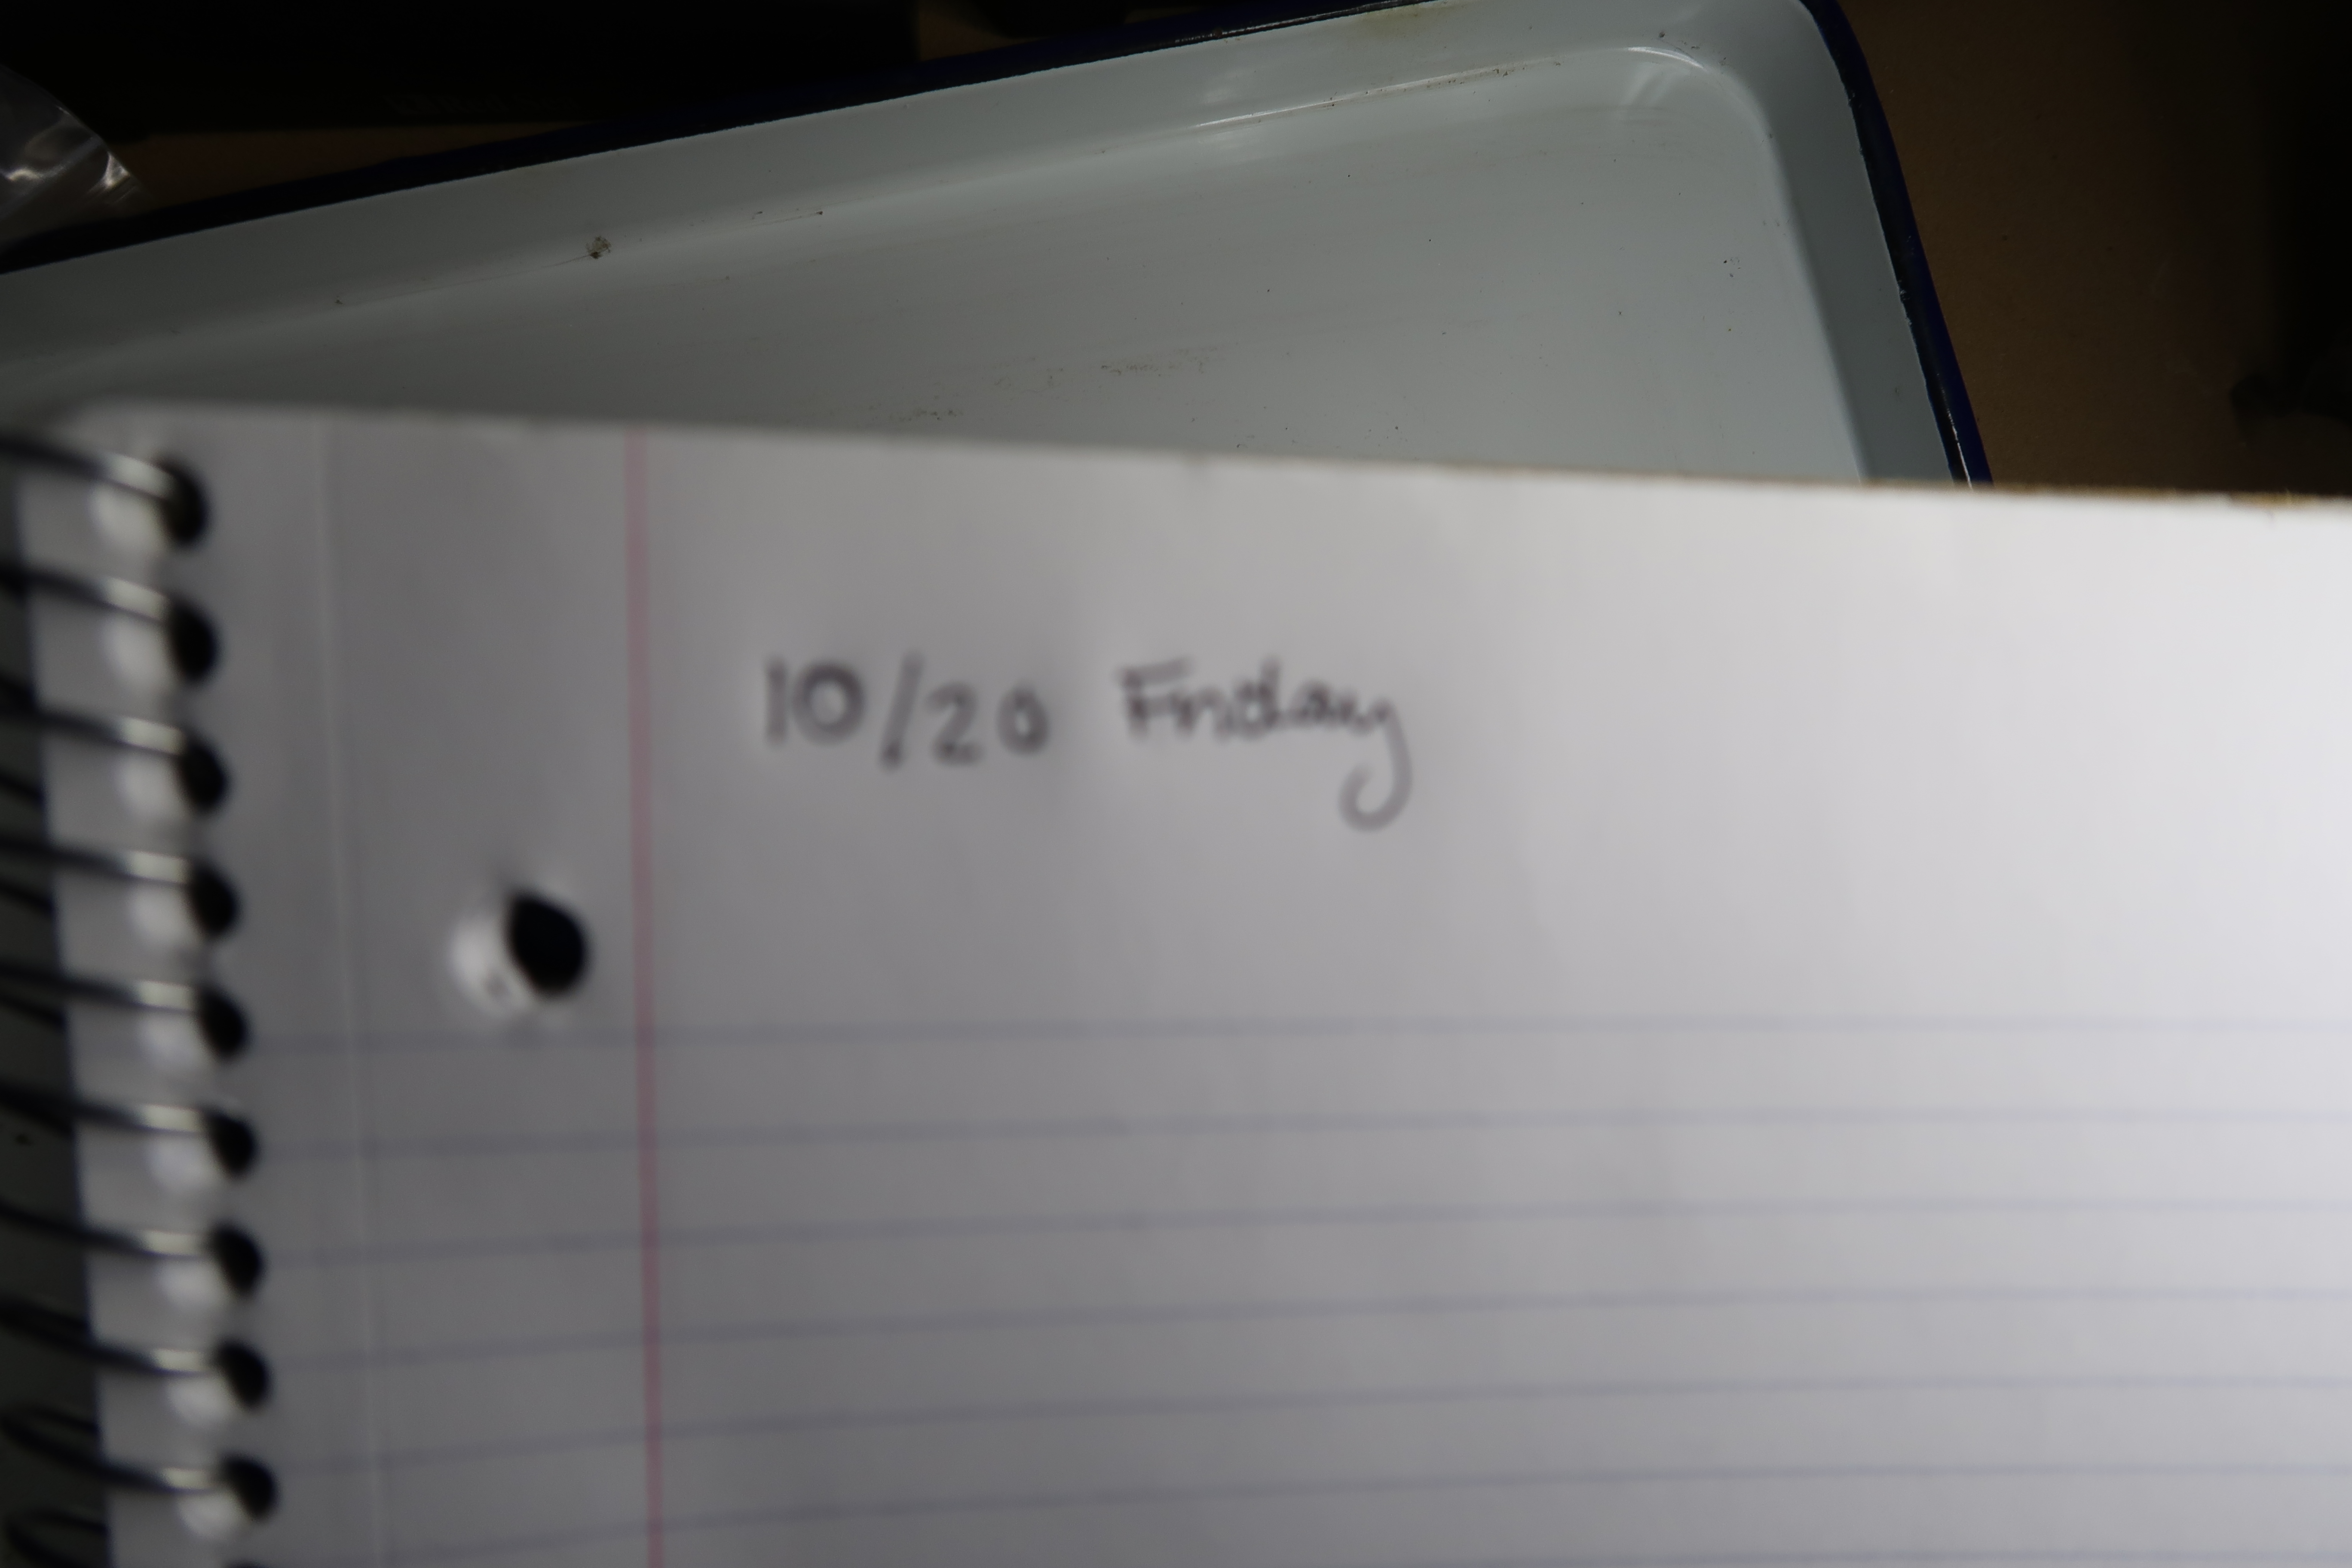 10/20 Friday